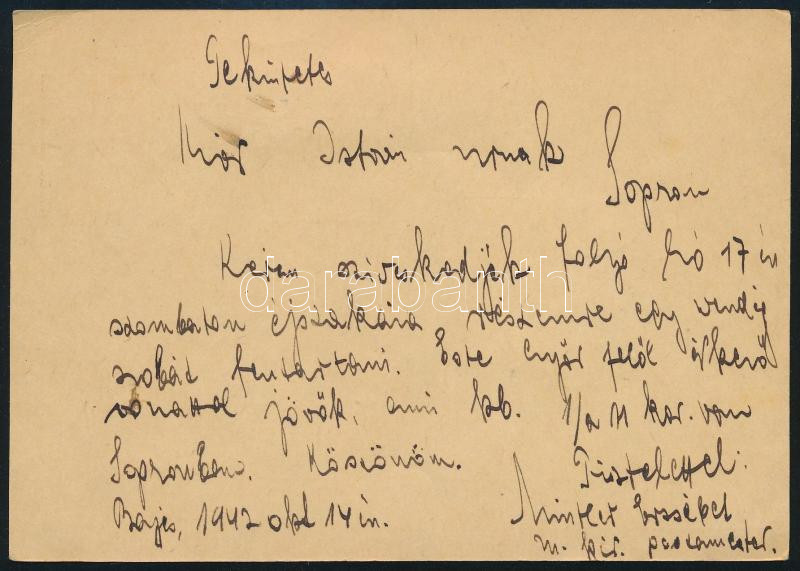 Tekintetes
Kiós István urnak
Sopron
Kérem sziveskedjék folyó hó 17 én
szombaton éjszakára részemre egy vendég
szobát fentartani. Este Győr felől érkező
vonattal jövök, ami kb. 1/2 11 kor. van
Sopronban. Köszönöm. Tisztelettel:
1942 okt 14 én. Erzsébet
m. kir. postamester.
darabanth